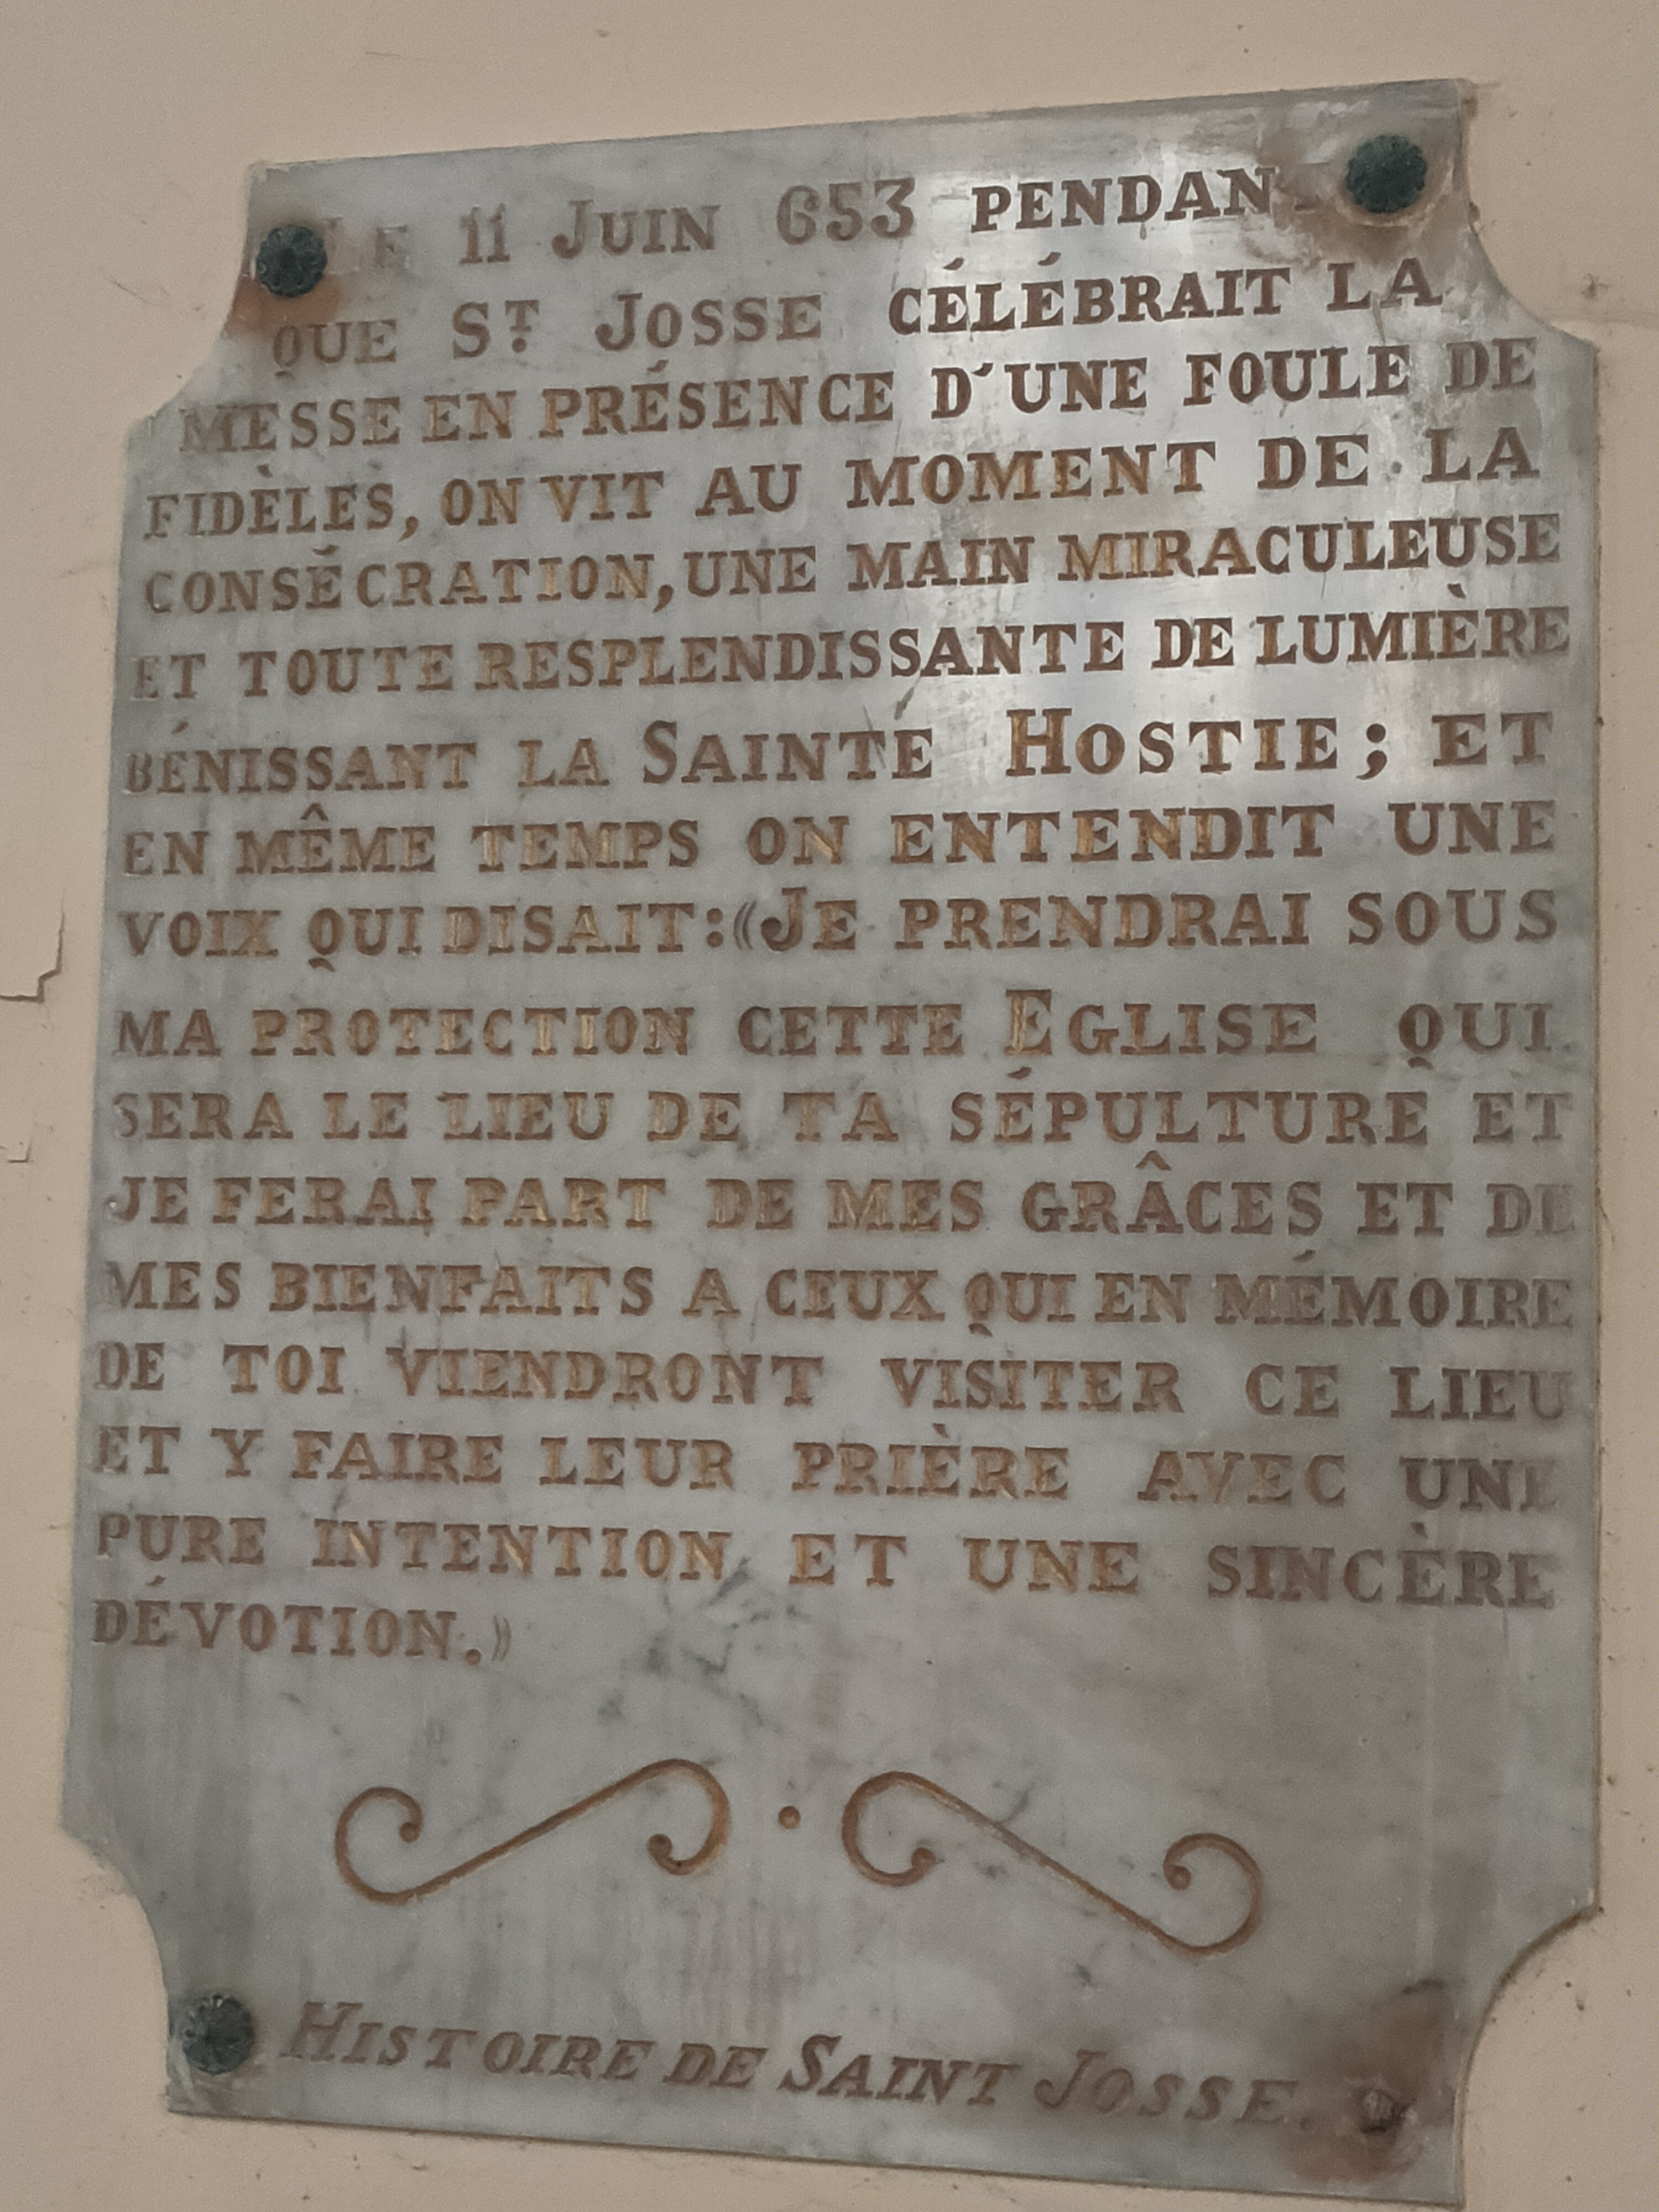 LE 11 JUIN 653 PENDANT
QUE ST JOSSE CÉLÉBRAIT LA
MESSE EN PRÉSENCE D'UNE FOULE DE
FIDÈLES, ON VIT AU MOMENT DE LA
CONSÉCRATION, UNE MAIN MIRACULEUSE
ET TOUTE RESPLENDISSANTE DE LUMIÈRE
BÉNISSANT LA SAINTE HOSTIE; ET
EN MÊME TEMPS ON ENTENDIT UNE
VOIX QUI DISAIT: «JE PRENDRAI SOUS
MA PROTECTION CETTE EGLISE QUI
SERA LE LIEU DE TA SÉPULTURE ET
JE FERAI PART DE MES GRÂCES ET DE
MES BIENFAITS A CEUX QUI EN MÉMOIRE
DE TOI VIENDRONT VISITER CE LIEU
ET Y FAIRE LEUR PRIÈRE AVEC UNE
PURE INTENTION ET UNE SINCÈRE
DÉVOTION.»
HISTOIRE DE SAINT JOSSE.